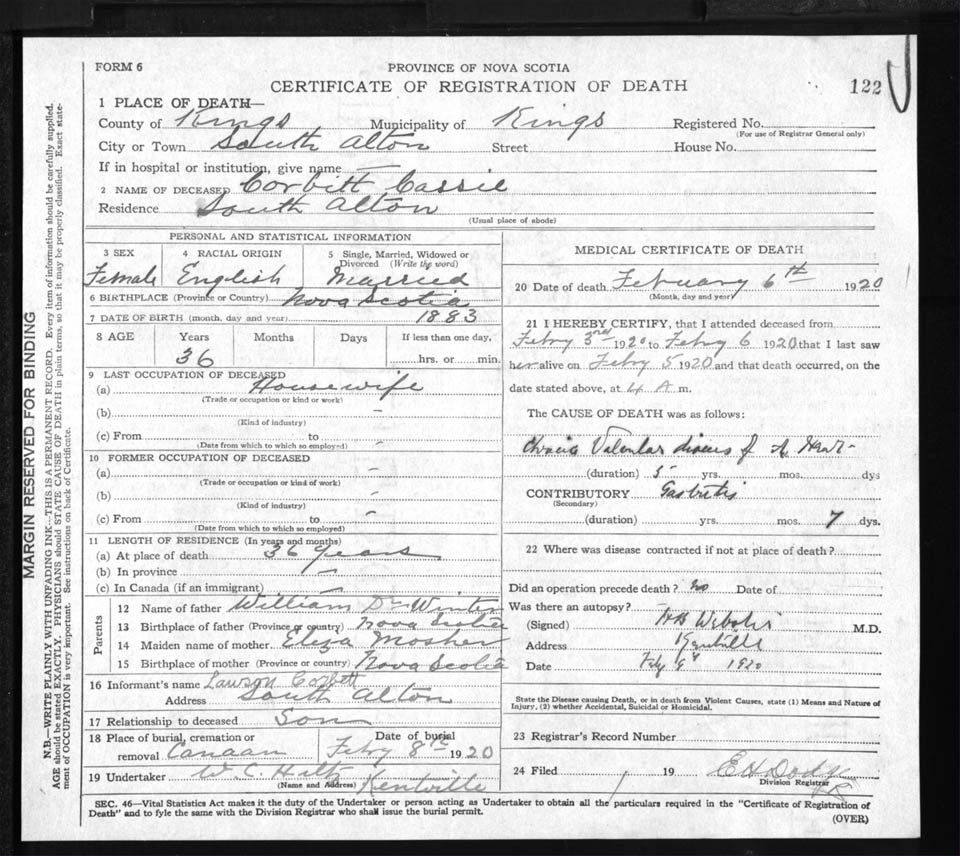 FORM 6
PROVINCE OF NOVA SCOTIA
CERTIFICATE OF REGISTRATION OF DEATH
122
1 PLACE OF DEATH—
County of Kings Municipality of Kings Registered No.
(For use of Registrar General only)
City or Town South Alton Street House No.
If in hospital or institution, give name —
2 NAME OF DECEASED Corbitt Cassie
Residence South Alton
(Usual place of abode)
PERSONAL AND STATISTICAL INFORMATION
3 SEX 4 RACIAL ORIGIN 5 Single, Married, Widowed or Divorced (Write the word)
Female English Married
6 BIRTHPLACE (Province or Country) Nova Scotia
7 DATE OF BIRTH (month, day and year) 1883
8 AGE Years Months Days If less than one day,
36 hrs. or min.
9 LAST OCCUPATION OF DECEASED
(a) Housewife
(Trade or occupation or kind or work)
(b) —
(Kind of industry)
(c) From to —
(Date from which to which so employed)
10 FORMER OCCUPATION OF DECEASED
(a) —
(Trade or occupation or kind of work)
(b) —
(Kind of industry)
(c) From to —
(Date from which to which so employed)
11 LENGTH OF RESIDENCE (In years and months)
(a) At place of death 36 years
(b) In province —
(c) In Canada (if an immigrant) —
Parents
12 Name of father William Winters
13 Birthplace of father (Province or country) Nova Scotia
14 Maiden name of mother Eliza Mosher
15 Birthplace of mother (Province or country) Nova Scotia
16 Informant's name Lawson Corbett
Address South Alton
17 Relationship to deceased Son
18 Place of burial, cremation or removal Canaan Date of burial Febry 8th 1920
19 Undertaker W. C. Hiltz Kentville
(Name and Address)
MEDICAL CERTIFICATE OF DEATH
20 Date of death February 6th 1920
(Month, day and year)
21 I HEREBY CERTIFY, that I attended deceased from
Febry 3rd 1920 to Febry 6 1920 that I last saw
her alive on Febry 5 1920 and that death occurred, on the
date stated above, at 4 A m.
The CAUSE OF DEATH was as follows:
Chronic Valvular disease of the Heart
(duration) 5 yrs. mos. dys
CONTRIBUTORY Gastritis
(Secondary)
(duration) yrs. mos. 7 dys.
22 Where was disease contracted if not at place of death?
Did an operation precede death? no Date of
Was there an autopsy? —
(Signed) Webster M.D.
Address Kentville
Date 1920
State the Disease causing Death, or in death from Violent Causes, state (1) Means and Nature of
Injury, (2) whether Accidental, Suicidal or Homicidal.
23 Registrar's Record Number
24 Filed 19 E H Dodge
Division Registrar
SEC. 46—Vital Statistics Act makes it the duty of the Undertaker or person acting as Undertaker to obtain all the particulars required in the "Certificate of Registration of
Death" and to fyle the same with the Division Registrar who shall issue the burial permit.
(OVER)
MARGIN RESERVED FOR BINDING
N.B.—WRITE PLAINLY WITH UNFADING INK—THIS IS A PERMANENT RECORD. Every item of information should be carefully supplied.
AGE should be stated EXACTLY. PHYSICIANS should STATE CAUSE OF DEATH in plain terms, so that it may be properly classified. Exact state-
ment of OCCUPATION is very important. See instructions on back of Certificate.